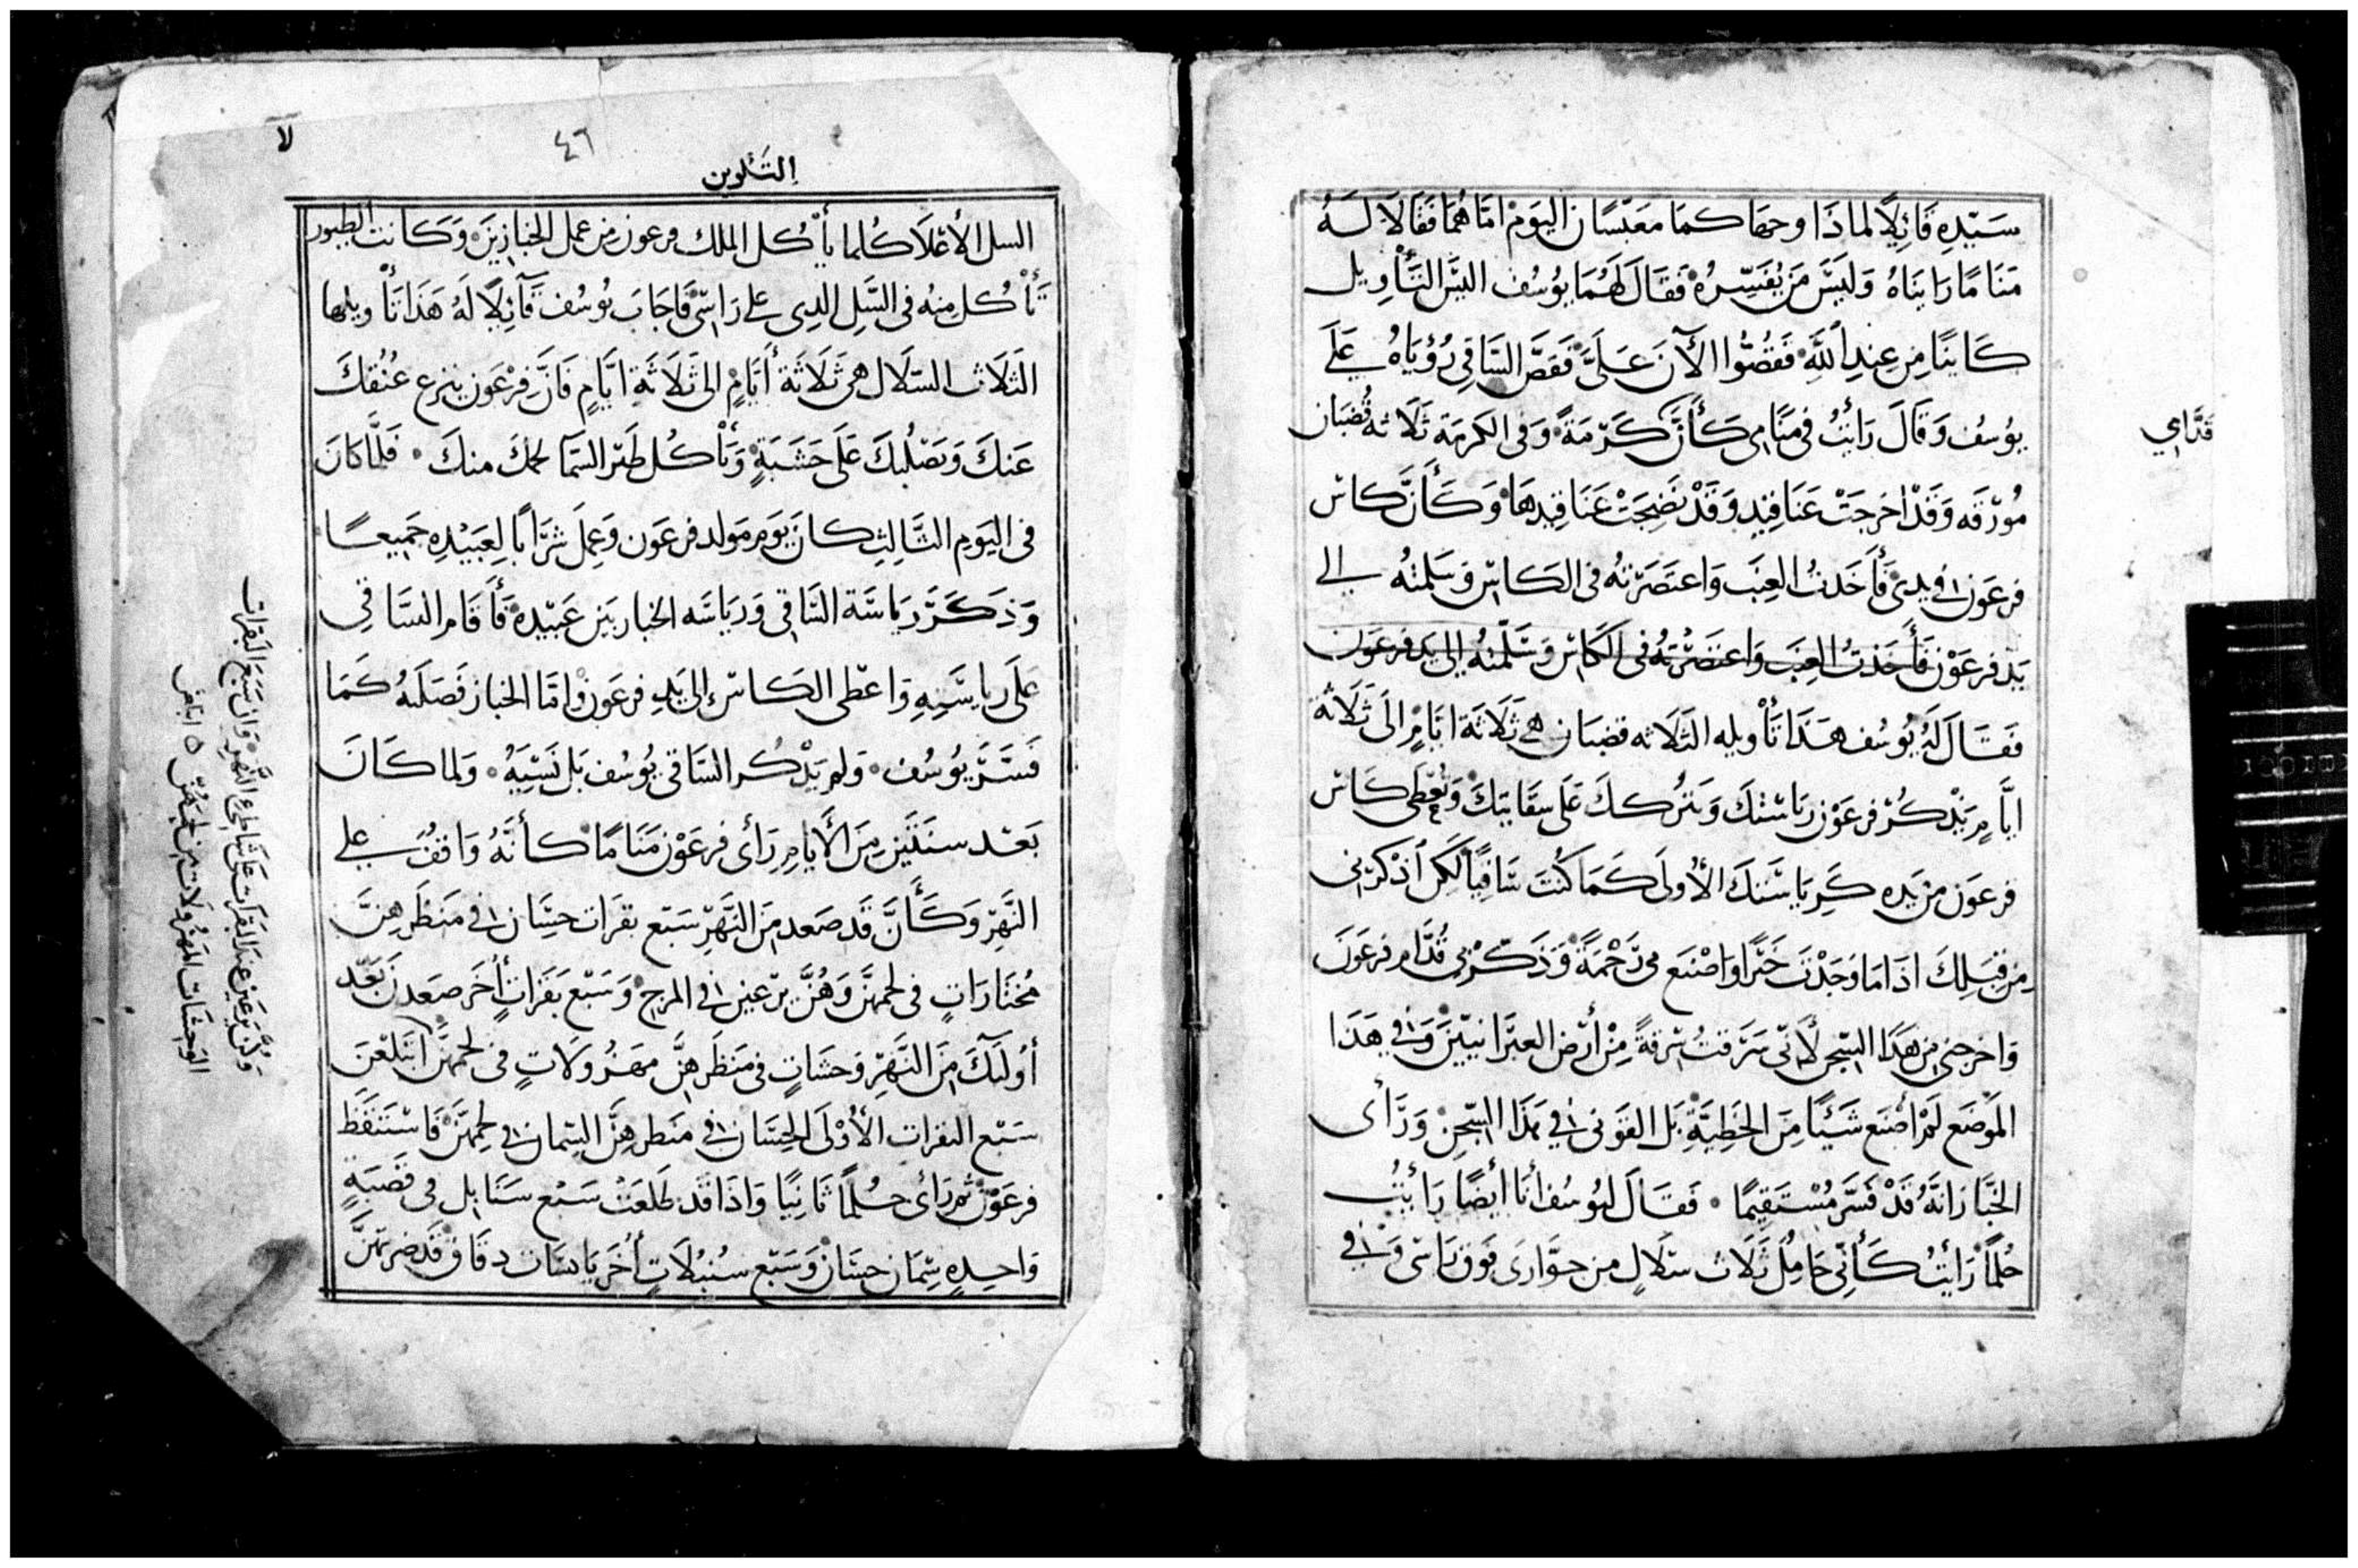 سَيّدِهِ قَائِلًا لماذَا وجهَاكمَا معَبّسَان اليَوم امَّا هُمَا فقَالَا لَهُ
مَنَامًا رَايَنَاهُ وَليَسَ مَن يُفَسِّرُهُ فَقَالَ لَهُمَا يُوسُف اليَسَ التَأْوِيل
كَاينًا مِن عِندِ اللَّهِ فَقُصُّوا الآنَ عَلَيَّ فَقَصَّ السَاقِي رُؤيَاهُ عَلَى
يوُسُف وَقَالَ رَايْتُ في مَنَامِى كَأَنَّ كَرْمَةً وَفى الكرمَة ثَلَاثة قُضبَان
مُورّقَه وَقَدْ اخرجَتْ عَنَاقِيدٍ وَقَدْ نَضِجَتْ عَنَاقِيدهَا وَكَأَنَّ كاسَ
فرعَون في يدي فَأَخَذتُ العِنَب وَاعتَصَرْتهُ في الكَاس وَسَلمتهُ الي
يَد فرعَوْن فَأَخَذتُ العِنَب وَاعتصَرْتهُ في الكَاس وَسَلّمتهُ الي يَد فرعَون
فقَالَ لَهُ يُوسُف هذَا تَأْويله الثَلَاثه قضبَان هي ثَلَاثَة ايَّامٍ الَى ثَلَاثة
ايَّامٍ يَذْكُرْ فرعَوْن رِيَاسَتكَ وَيترُككَ عَلَى سقَايَتكَ وَتُعْطِي كَاس
فرعَون من يَده كَرِيَاسَتكَ الأُولَى كَمَا كُنتَ سَاقِيًا لَكِن اذكرْنى
مِن قِبَلِكَ اذَا مَا وَجَدْتَ خَيْرًا وَاصْنَع بي رَحْمَةً وَذَكّرْني قُدَّام فرعَونَ
وَاخرجني من هَذَا السِّجن لأنّي سَرَقتُ سَرقةً مِنْ أَرْض العبرَانيّينَ وَفي هَذَا
المَوْضَع لَمْ أَصْنَع شَيْئًا مِنَ الخَطِيَّةِ بَل القَونى في هَذَا السِّجن وَرَأى
الخَبَّاز انَّهُ قَدْ فَسَّرَ مُسْتَقِيمًا فَقَالَ ليُوسُف أَنَا أَيضًا رَأَيْتُ
حُلمًا رَأَيتُ كَأَنّي حَامِلُ ثَلَاث سِلَالٍ من حوَّارى فَوق رَاسى وَفي
قدَّامي
٤٦
التَكوين
لا
السل الأَعْلَا كُلما يأْكل الملك فرعون من عمل الخبازينَ وَكَانت الطيور
تَأْكل منهُ في السَّلِ الذي علي رَاسي فَاجَابَ يُوسُف قَائِلًا لَهُ هَذَا تَأْويلها
الثَلَاث السَلَال هي ثَلَاثَة أَيَّامٍ الى ثَلَاثَةِ ايَّامٍ فَانَّ فِرْعَون ينزع عُنُقكَ
عَنكَ وَيَصْلُبكَ عَلَى خَشَبَةٍ وَيَأْكُل طَيْر السَمَا لحمكَ منكَ فَلَمَّا كَانَ
في اليَوم الثَّالِثِ كانَ يَوم مَولد فرعَون وَعمِلَ شَرَابًا لِعَبيْدِه جَمِيعًا
وَذَكَرَ رِيَاسَة السَاقى وَريَاسَه الخباز بَين عَبيْدِه فَأَقَام السَاقِي
عَلَى رياسَتِهِ وَاعْطى الكَاسَ إلى يَدِ فرعَون وَامَّا الخباز فَصَلَبهُ كَمَا
فَسَّرَ يُوسُف وَلم يَذْكُر السَاقي يُوسُف بَل نَسِيَهُ وَلما كَانَ
بَعْد سنَتَين مِنَ الأَيَّام رَأَى فرعَوْن مَنَامًا كأنَّهُ وَاقفٌ علي
النَّهَرِ وَكَأَنَّ قَد صَعد منَ النَّهَرِ سَبْع بقرَات حسَان في مَنظَرِهِنَّ
مُختَارَاتٍ في لحمهنَّ وَهُنَّ يرْعين في المرج وَسَبْع بَقَرَاتٍ أُخَر صَعَدنَ بَعْد
أُولَئِكَ منَ النَّهَرِ وَحشَاتٍ في مَنظَرهنَّ مهَزُولَاتٍ في لحمهنَّ ابتَلَعْنَ
سَبْع البقرات الأُوْلَى الحِسَان في منظرهنَّ السمان في لحمهنَّ فَاسْتَيْقَظَ
فرعَوْن ثمَّ رَأى حُلمًا ثَانِيًا وَاذَا قَد طَلعَتْ سَبْع سنَابل في قَصَبَةٍ
وَاحِدِةٍ سِمَان حِسَان وَسَبْع سُنبُلَاتٍ أُخَر يَابسَات دقَاق قَد ضربَتهنَّ
وَكُنَّ يَرعَين عندَ البَقَرَات عَلَى شَاطِيِ النَّهر وَان سَبَع البَقرات
الوَحشَات المَهزُولَات من لحمهنّ